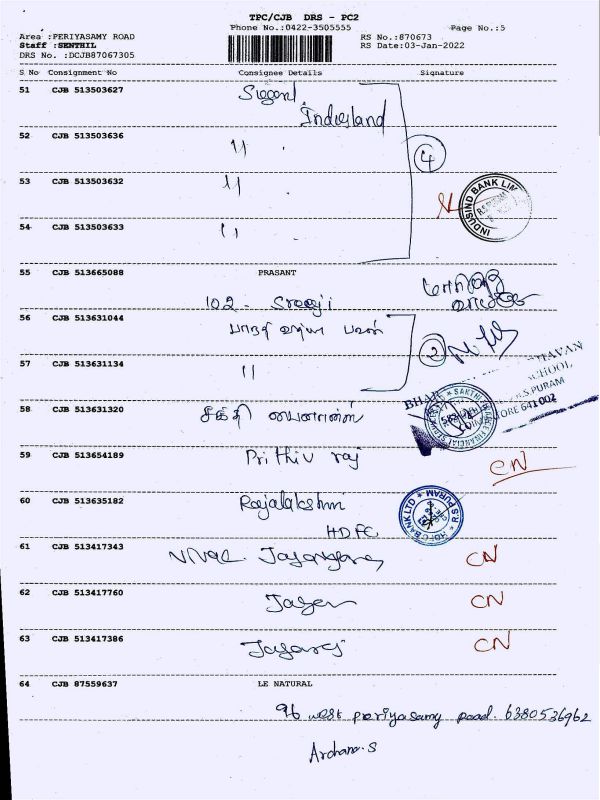 TPC/CJB DRS - PC2
Phone No.:0422-3505555
Page No.:5
Area :PERIYASAMY ROAD
RS No.:870673
Staff :SENTHIL
RS Date:03-Jan-2022
DRS No. :DCJB87067305
S No Consignment No Consignee Details Signature
51 CJB 513503627
Indusland
52 CJB 513503636 11
4
53 CJB 513503632 11
INDUSIND BANK LIM
54 CJB 513503633 11
55 CJB 513665088 PRASANT
102 - Sreeji
56 CJB 513631044 பாரதி வித்யா பவன்
2
57 CJB 513631134 11
BHAR AVAN
SCHOOL
R.S PURAM
COIMBATORE 641 002
58 CJB 513631320 சக்தி பைனான்ஸ்
59 CJB 513654189 Prithiv raj CN
60 CJB 513635182 Rajalakshmi
HDFC
HDFC BANK LTD R S PURAM
61 CJB 513417343 CN
62 CJB 513417760 CN
63 CJB 513417386 Jayaraj CN
64 CJB 87559637 LE NATURAL
96 west periyasamy road. 6380536962
Archana.S